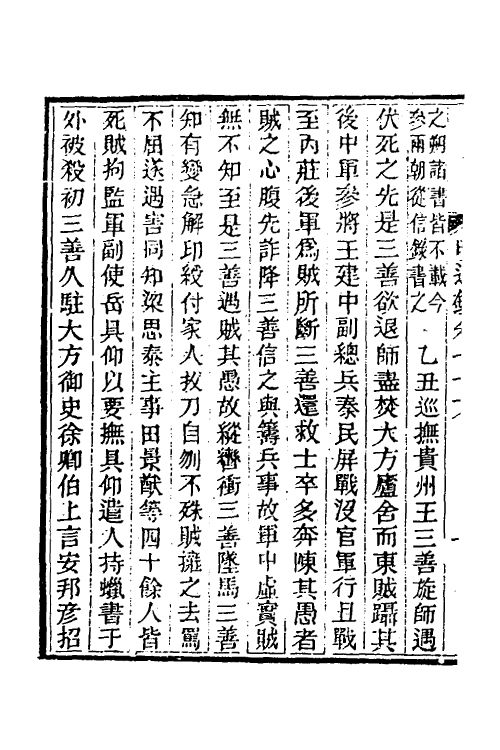 之朔諸書皆不載今
參兩朝從信錄書之　乙丑巡撫貴州王三善旋師遇
伏死之先是三善欲退師盡焚大方廬舍而東賊躡其
後中軍參將王建中副總兵秦民屏戰沒官軍行且戰
至內莊後軍爲賊所斷三善還救士卒多奔陳其愚者
賊之心腹先詐降三善信之與籌兵事故軍中虛實賊
無不知至是三善遇賊其愚故縱轡衝三善墜馬三善
知有變急解印綬付家人拔刀自刎不殊賊擁之去罵
不屈遂遇害同知梁思泰主事田景猷等四十餘人皆
死賊拘監軍副使岳具仰以要撫具仰遣人持蠟書于
外被殺初三善久駐大方御史徐卿伯上言安邦彥招